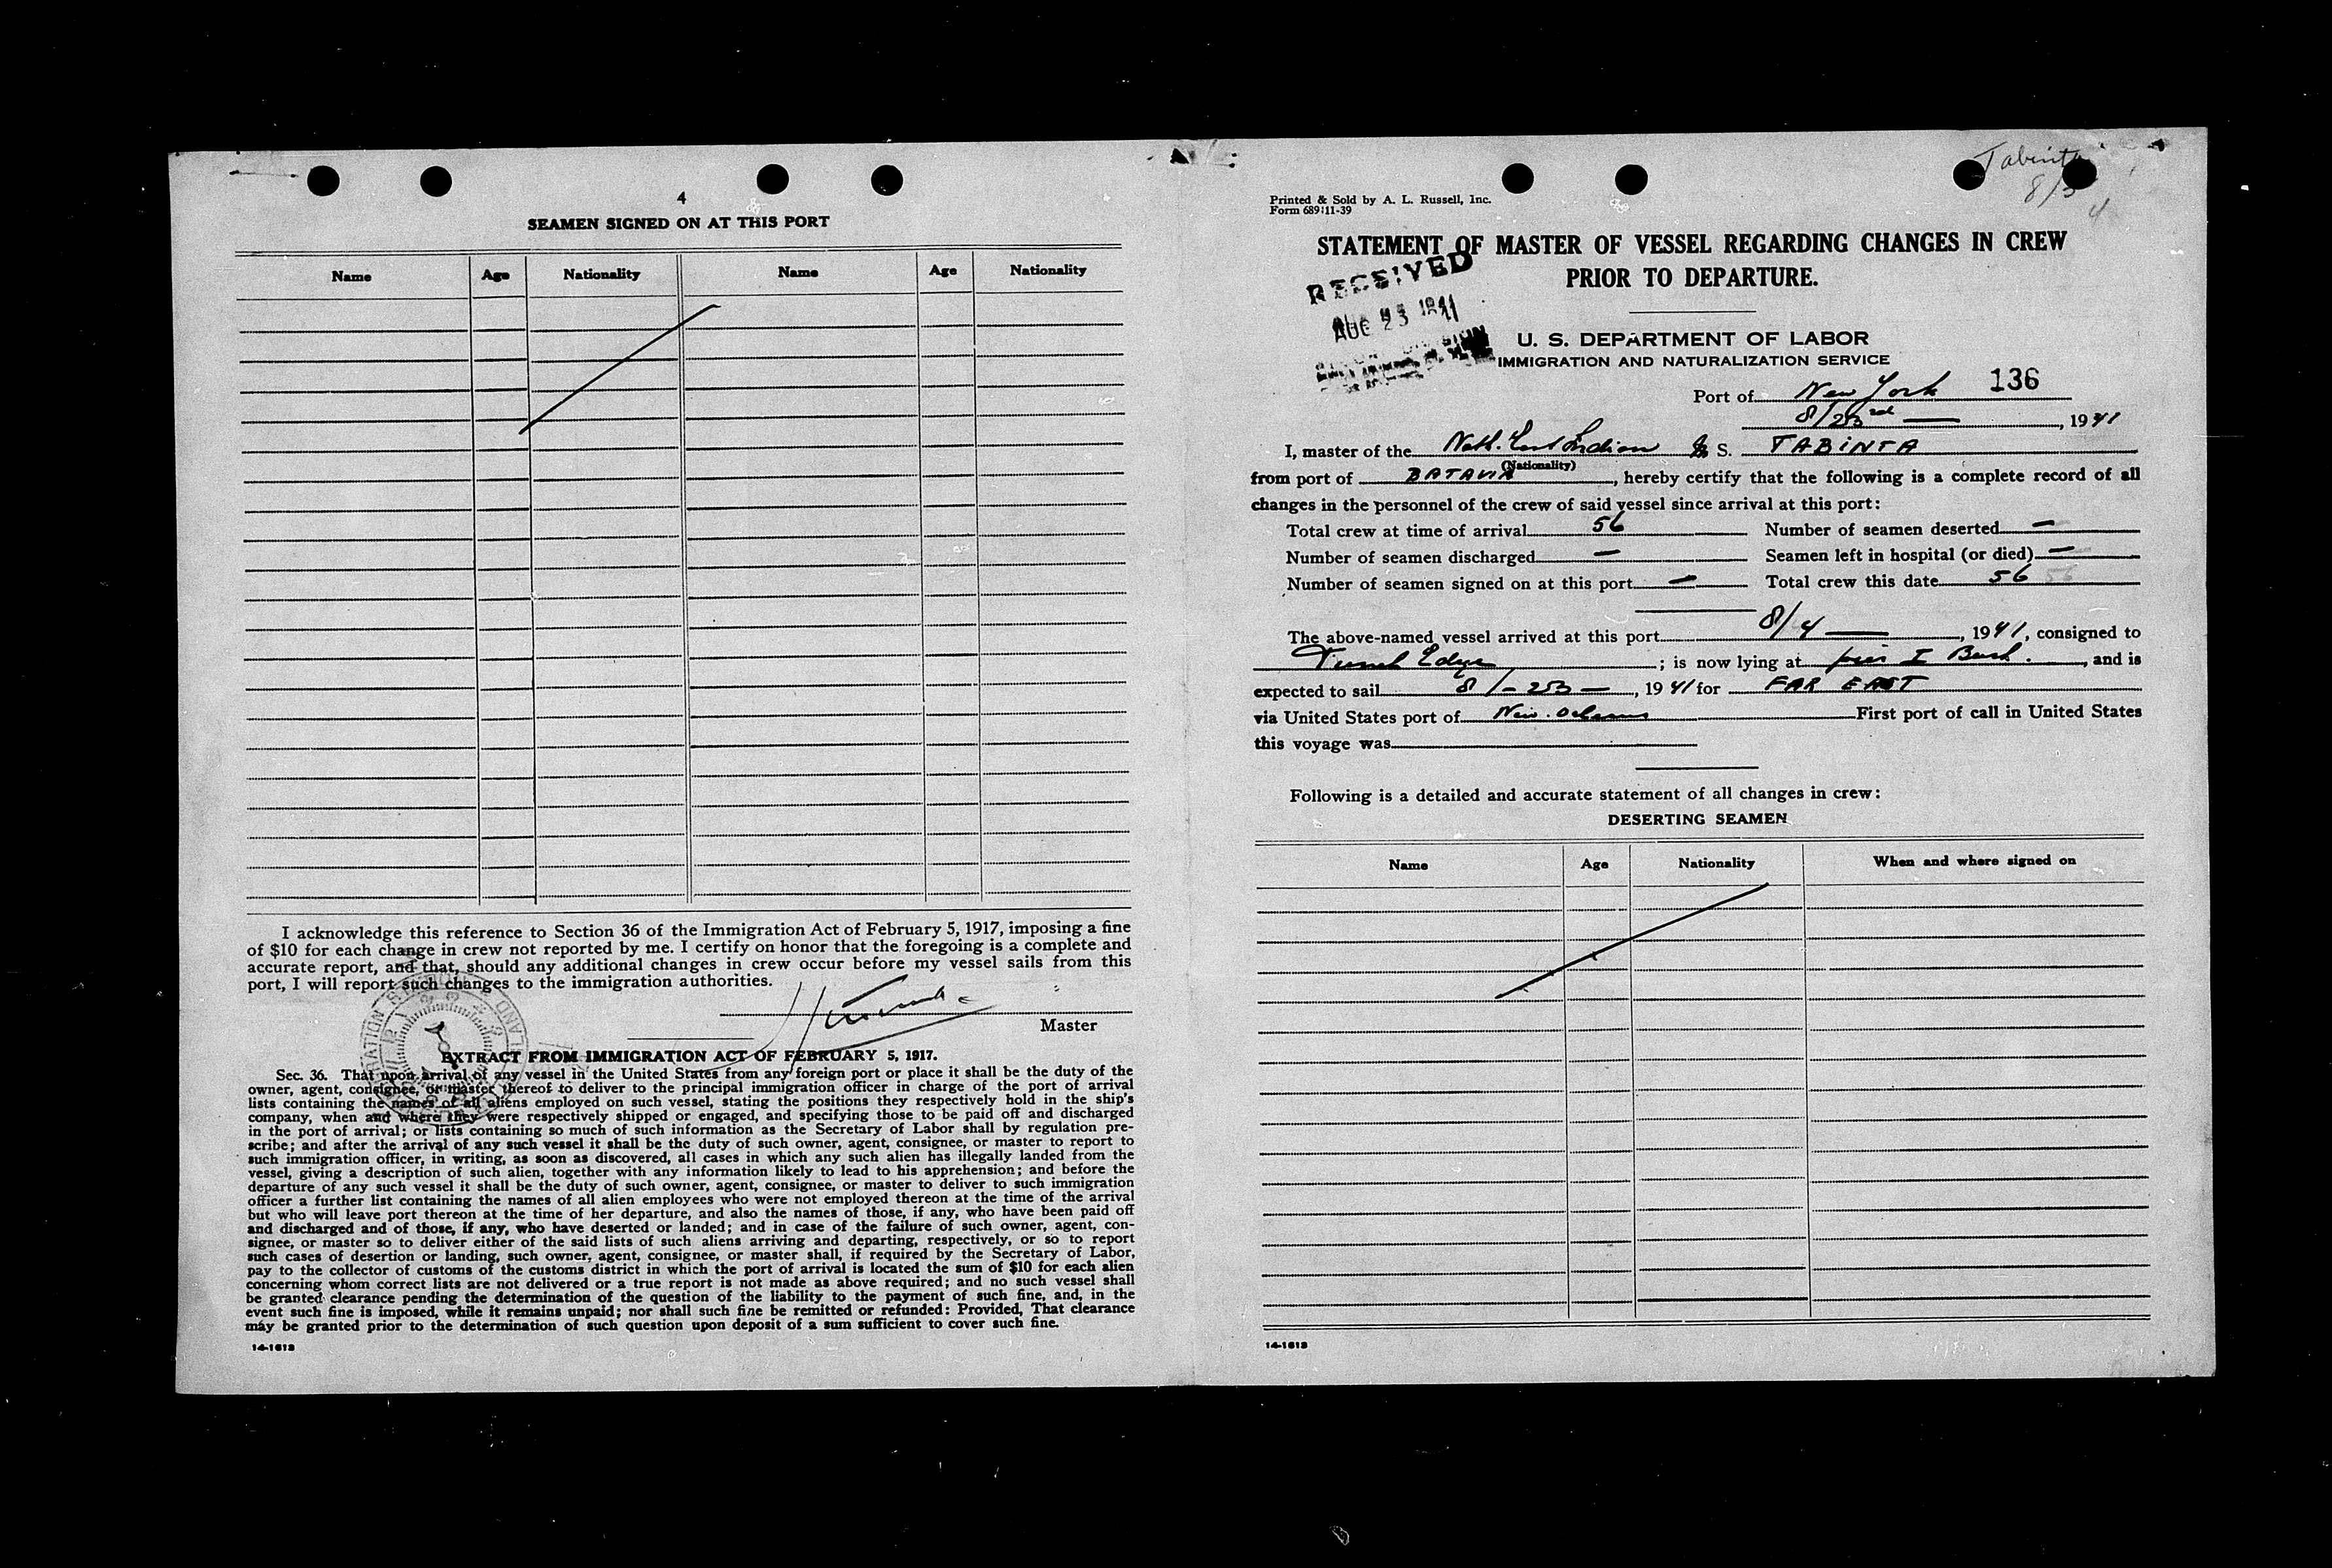 4
SEAMEN SIGNED ON AT THIS PORT
Name Age Nationality Name Age Nationality
I acknowledge this reference to Section 36 of the Immigration Act of February 5, 1917, imposing a fine
of $10 for each change in crew not reported by me. I certify on honor that the foregoing is a complete and
accurate report, and that, should any additional changes in crew occur before my vessel sails from this
port, I will report such changes to the immigration authorities.
Master
EXTRACT FROM IMMIGRATION ACT OF FEBRUARY 5, 1917.
Sec. 36. That upon arrival of any vessel in the United States from any foreign port or place it shall be the duty of the
owner, agent, consignee, or master thereof to deliver to the principal immigration officer in charge of the port of arrival
lists containing the names of all aliens employed on such vessel, stating the positions they respectively hold in the ship's
company, when and where they were respectively shipped or engaged, and specifying those to be paid off and discharged
in the port of arrival; or lists containing so much of such information as the Secretary of Labor shall by regulation pre-
scribe; and after the arrival of any such vessel it shall be the duty of such owner, agent, consignee, or master to report to
such immigration officer, in writing, as soon as discovered, all cases in which any such alien has illegally landed from the
vessel, giving a description of such alien, together with any information likely to lead to his apprehension; and before the
departure of any such vessel it shall be the duty of such owner, agent, consignee, or master to deliver to such immigration
officer a further list containing the names of all alien employees who were not employed thereon at the time of the arrival
but who will leave port thereon at the time of her departure, and also the names of those, if any, who have been paid off
and discharged and of those, if any, who have deserted or landed; and in case of the failure of such owner, agent, con-
signee, or master so to deliver either of the said lists of such aliens arriving and departing, respectively, or so to report
such cases of desertion or landing, such owner, agent, consignee, or master shall, if required by the Secretary of Labor,
pay to the collector of customs of the customs district in which the port of arrival is located the sum of $10 for each alien
concerning whom correct lists are not delivered or a true report is not made as above required; and no such vessel shall
be granted clearance pending the determination of the question of the liability to the payment of such fine, and, in the
event such fine is imposed, while it remains unpaid; nor shall such fine be remitted or refunded: Provided, That clearance
may be granted prior to the determination of such question upon deposit of a sum sufficient to cover such fine.
14-1613
Tabinta
Printed & Sold by A. L. Russell, Inc.
Form 689:11-39
STATEMENT OF MASTER OF VESSEL REGARDING CHANGES IN CREW
PRIOR TO DEPARTURE.
RECEIVED
AUG 23 1941
U. S. DEPARTMENT OF LABOR
IMMIGRATION AND NATURALIZATION SERVICE
Port of New York 136
8/23rd, 1941
I, master of the Neth. East Indian S. TABINTA
(Nationality)
from port of BATAVIA, hereby certify that the following is a complete record of all
changes in the personnel of the crew of said vessel since arrival at this port:
Total crew at time of arrival 56 Number of seamen deserted —
Number of seamen discharged — Seamen left in hospital (or died) —
Number of seamen signed on at this port — Total crew this date 56 56
The above-named vessel arrived at this port 8/4 —, 1941, consigned to
Funch Edye; is now lying at pier I Bush., and is
expected to sail 8/-23 —, 1941 for FAR EAST
via United States port of New. Orleans First port of call in United States
this voyage was
Following is a detailed and accurate statement of all changes in crew:
DESERTING SEAMEN
Name Age Nationality When and where signed on
14-1613